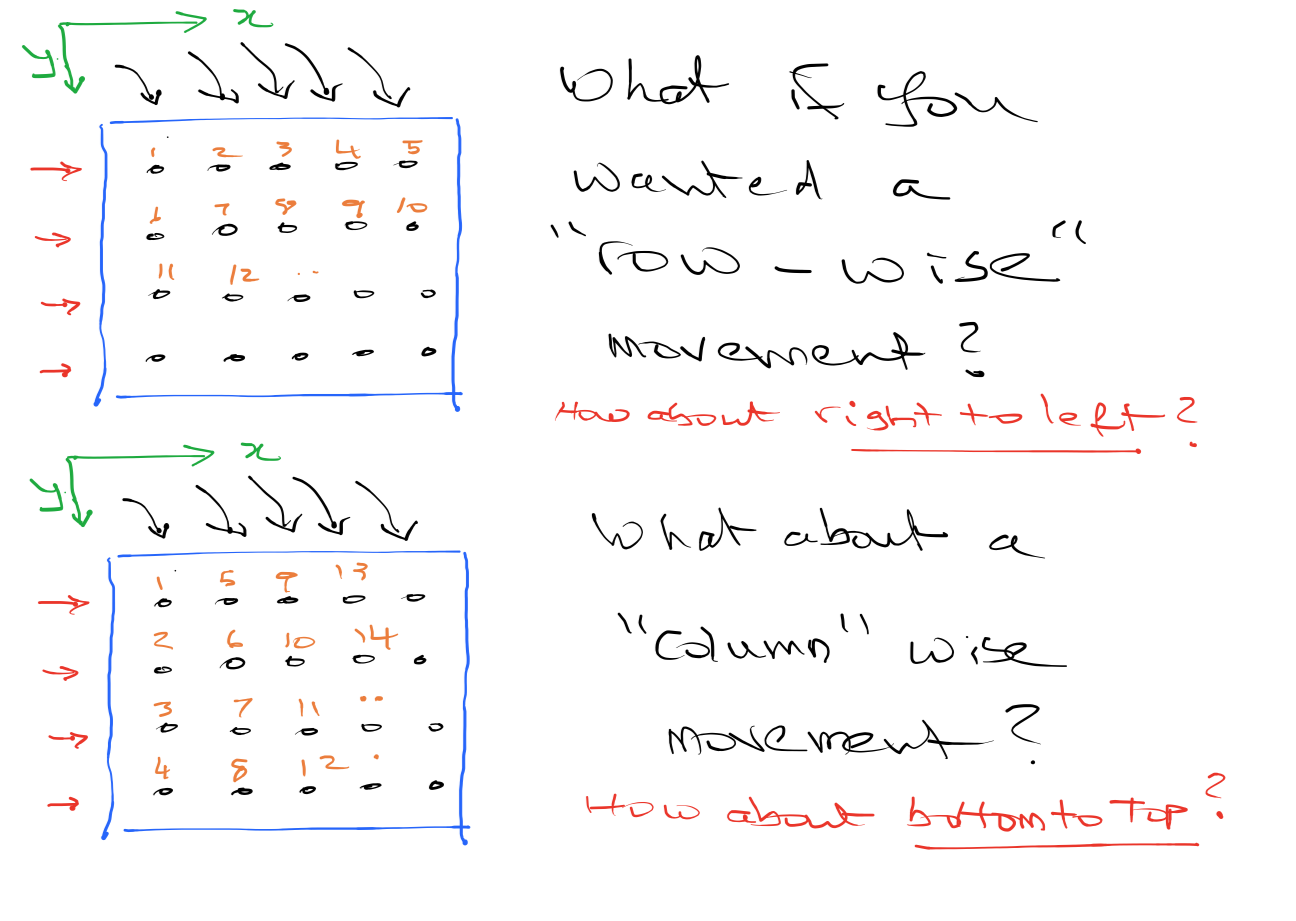 x
y
1 2 3 4 5
6 7 8 9 10
11 12 ..
What if you
wanted a
"row - wise"
movement?
How about right to left?
x
y
1 5 9 13
2 6 10 14
3 7 11 ..
4 8 12 .
What about a
"Column" wise
movement?
How about bottom to Top?